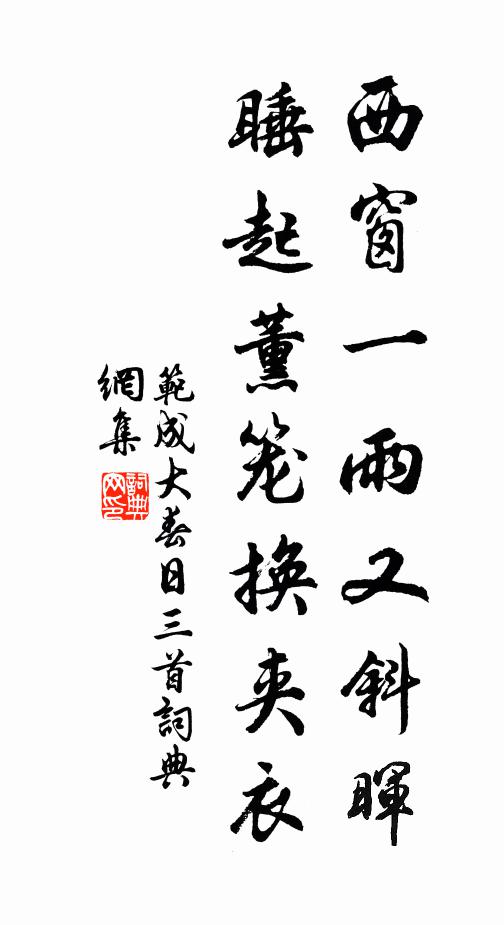 西窗一雨又斜暉
睡起薰笼換夹衣
範成大春日三首詞典
網集
詞典
网印